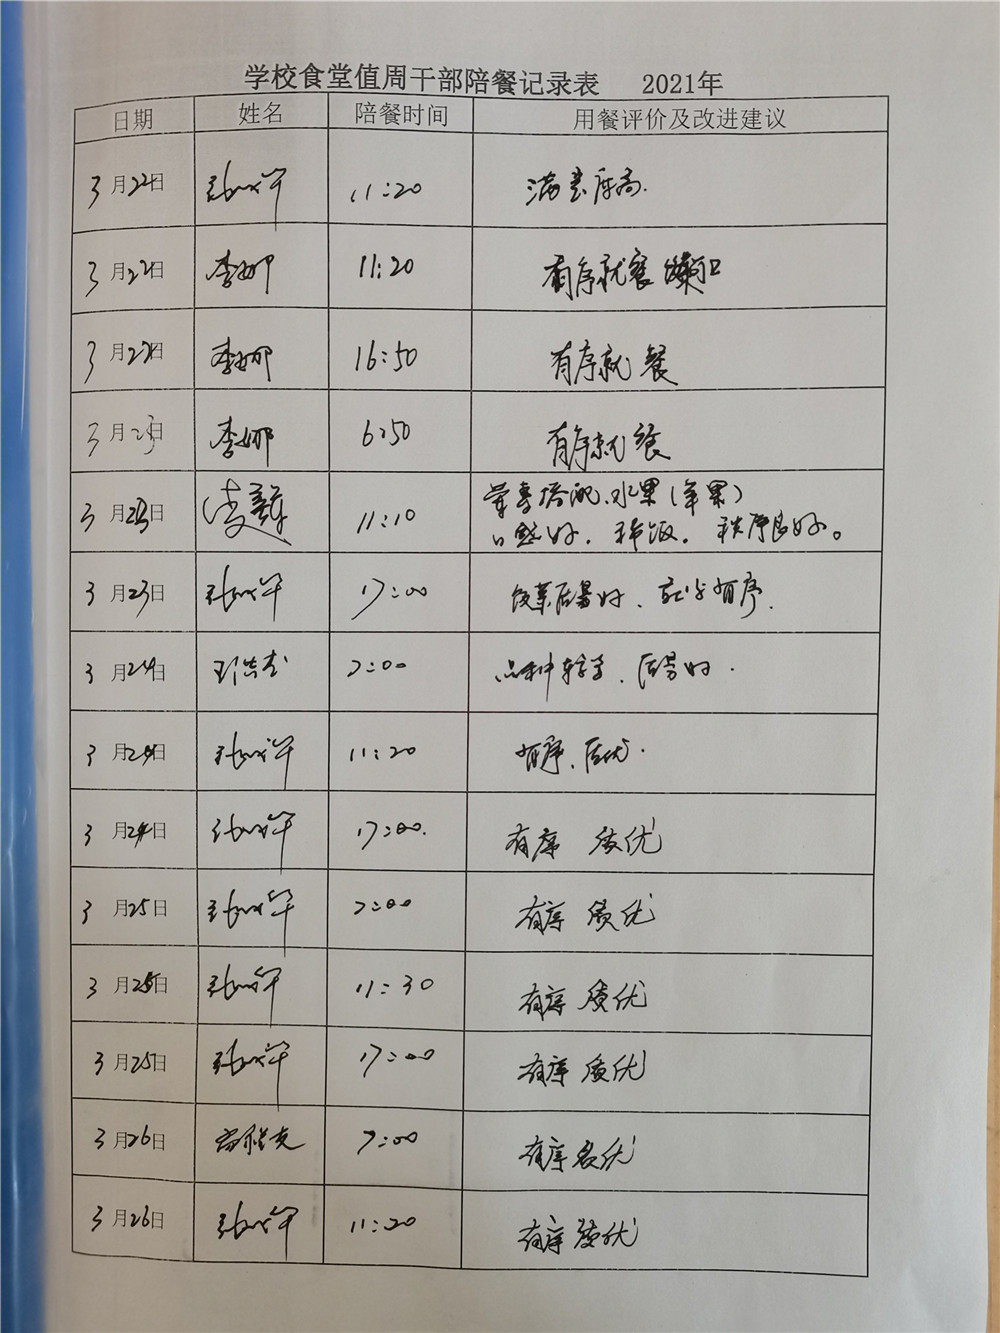 学校食堂值周干部陪餐记录表 2021年
日期 姓名 陪餐时间 用餐评价及改进建议
3月22日 11:20 满意度高.
3月22日 李娜 11:20 有序就餐
3月22日 李娜 16:50 有序就餐
3月23日 李娜 6:50 有序就餐
3月23日 11:10 营养搭配.水果(苹果)
口感好. 稀饭. 秩序良好。
3月23日 17:00 饭菜质量好、就餐有序.
3月24日 7:00 品种较多、质量好.
3月24日 11:20 有序、质优.
3月24日 17:00. 有序 质优
3月25日 7:00 有序 质优
3月25日 11:30 有序 质优
3月25日 17:00 有序 质优
3月26日 7:00 有序 质优
3月26日 11:20 有序 质优